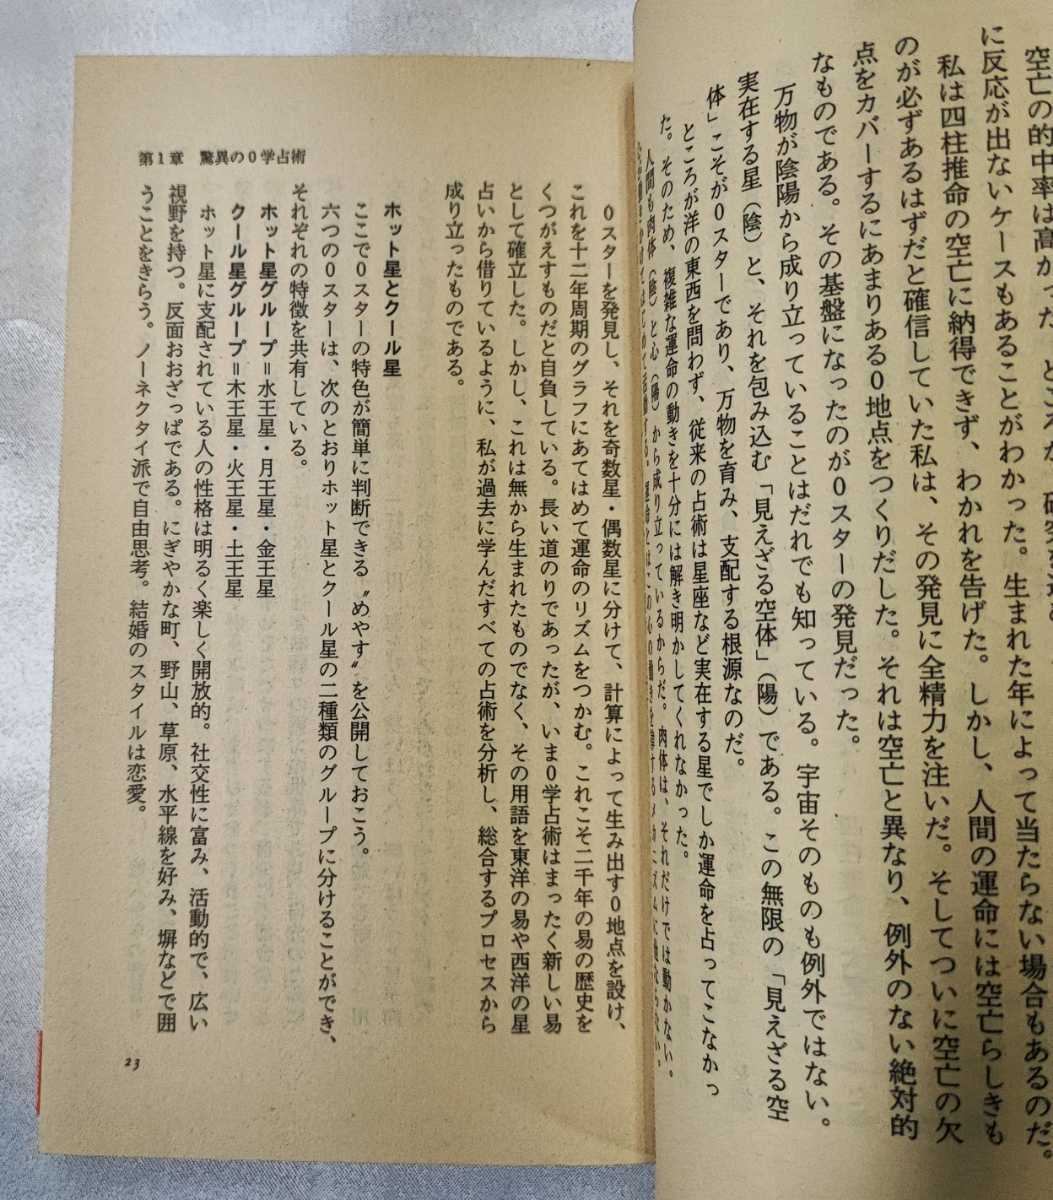 空亡の的中率は高かった。ところが、研究を進
に反応が出ないケースもあることがわかった。生まれた年によって当たらない場合もあるのだ。
私は四柱推命の空亡に納得できず、わかれを告げた。しかし、人間の運命には空亡らしきも
のが必ずあるはずだと確信していた私は、その発見に全精力を注いだ。そしてついに空亡の欠
点をカバーするにあまりある0地点をつくりだした。それは空亡と異なり、例外のない絶対的
なものである。その基盤になったのが0スターの発見だった。
万物が陰陽から成り立っていることはだれでも知っている。宇宙そのものも例外ではない。
実在する星(陰)と、それを包み込む「見えざる空体」(陽)である。この無限の「見えざる空
体」こそが0スターであり、万物を育み、支配する根源なのだ。
ところが洋の東西を問わず、従来の占術は星座など実在する星でしか運命を占ってこなかっ
た。そのため、複雑な運命の動きを十分には解き明かしてくれなかった。
人間も肉体(陰)と心(陽)から成り立っているからだ。肉体は、それだけでは動かない。
第1章 驚異の0学占術
0スターを発見し、それを奇数星・偶数星に分けて、計算によって生み出す0地点を設け、
これを十二年周期のグラフにあてはめて運命のリズムをつかむ。これこそ二千年の易の歴史を
くつがえすものだと自負している。長い道のりであったが、いま0学占術はまったく新しい易
として確立した。しかし、これは無から生まれたものでなく、その用語を東洋の易や西洋の星
占いから借りているように、私が過去に学んだすべての占術を分析し、総合するプロセスから
成り立ったものである。
ホット星とクール星
ここで0スターの特色が簡単に判断できる〝めやす〟を公開しておこう。
六つの0スターは、次のとおりホット星とクール星の二種類のグループに分けることができ、
それぞれの特徴を共有している。
ホット星グループ=水王星・月王星・金王星
クール星グループ=木王星・火王星・土王星
ホット星に支配されている人の性格は明るく楽しく開放的。社交性に富み、活動的で、広い
視野を持つ。反面おおざっぱである。にぎやかな町、野山、草原、水平線を好み、塀などで囲
うことをきらう。ノーネクタイ派で自由思考。結婚のスタイルは恋愛。
23